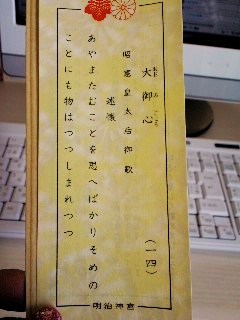 大御心
おおみごころ
(一四)
昭憲皇太后御歌
述懐
あやまたむことを思へばかりそめの
ことにも物はつつしまれつつ
明治神宮